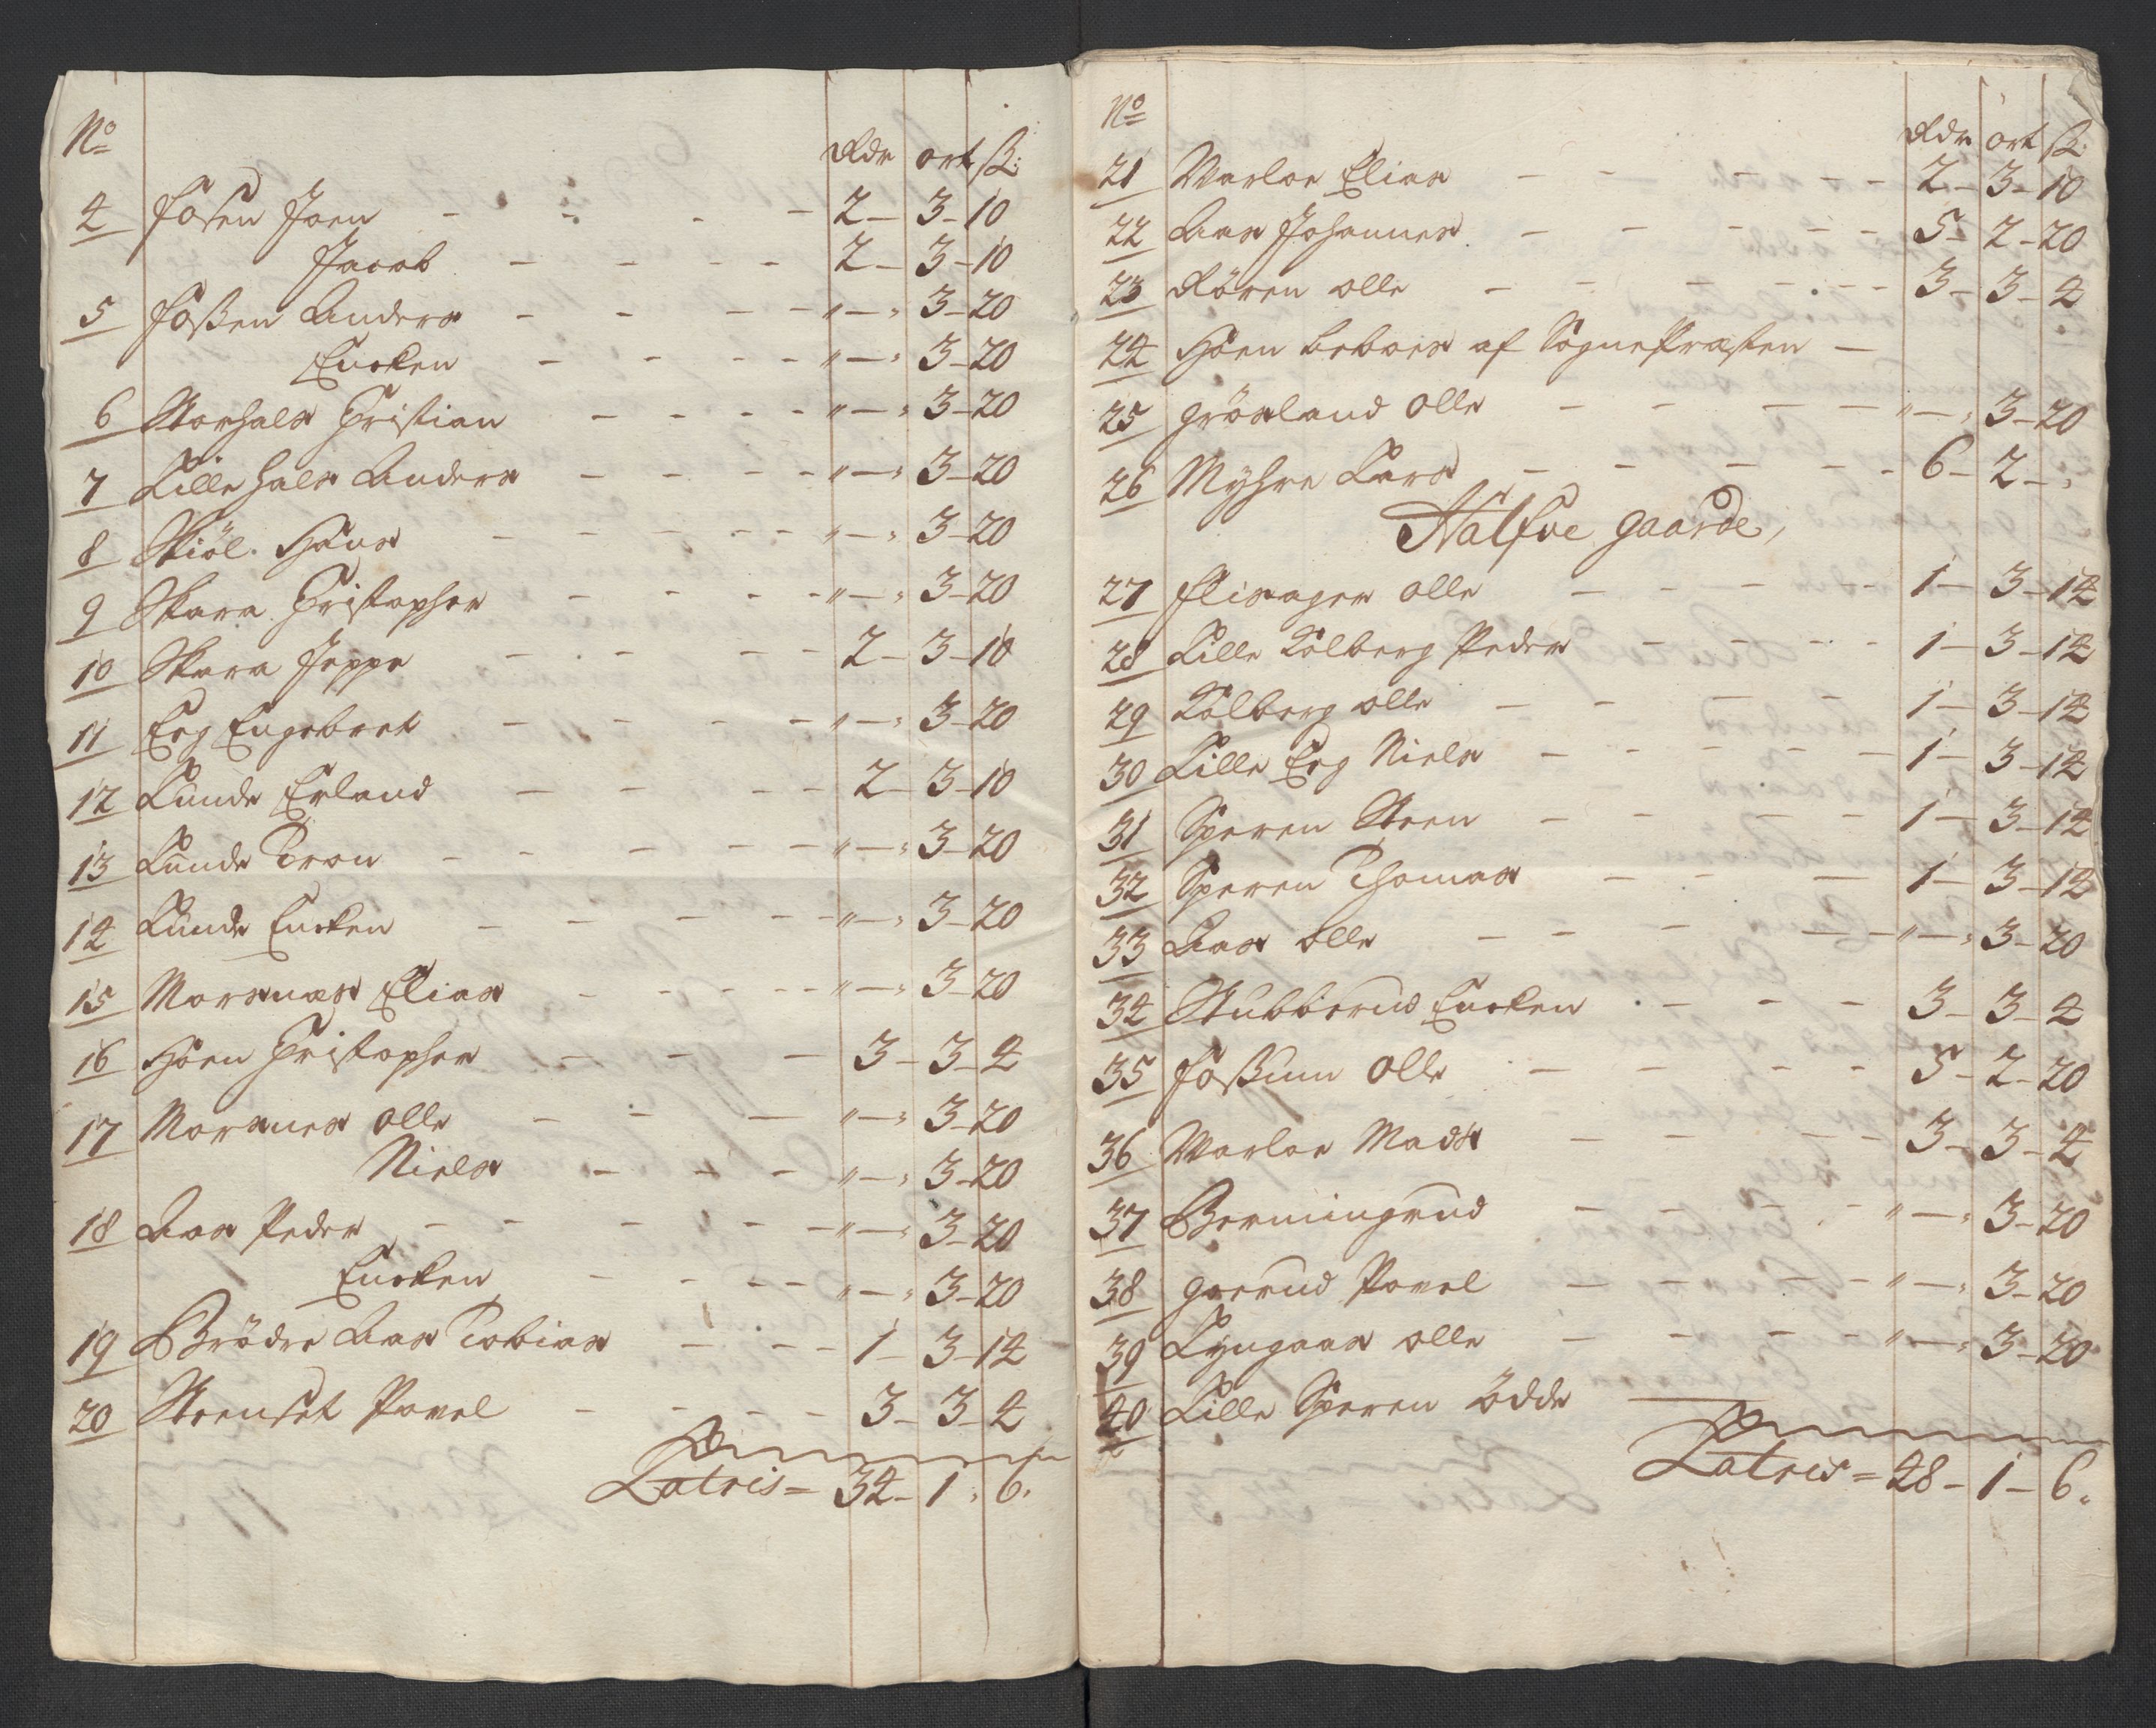 No
Rdr ort ß:
4 Fosen Joen - - - - 2 - 3 - 10
Jacob - - - - 2 - 3 - 10
5 Foßen Anders - - - - " - " 3 - 20
Encken - - - - " - " 3 - 20
6 Storhals Christian - - - - " - " 3 - 20
7 Lille hals Anders - - - - " - " 3 - 20
8 Skiøl Hans - - - - - " - " 3 - 20
9 Skara Christopher - - - - " - " 3 - 20
10 Skara Jeppe - - - - 2 - 3 - 10
11 Eeg Engebret - - - - " - " 3 - 20
12 Lunde Erland - - - - 2 - 3 - 10
13 Lunde Tron - - - - - " - " 3 - 20
14 Lunde Encken - - - - - " - " 3 - 20
15 Morsnæs Elias - - - - - " - " 3 - 20
16 Høen Christopher - - - 3 - 3 - 4
17 Morsnes Olle - - - " - " 3 - 20
Niels - - - " - " 3 - 20
18 Aas Peder - - - - - " - " 3 - 20
Encken - - - - " - " 3 - 20
19 Brödre Aas Tobias - - - - 1 - 3 - 14
20 Steenset Povel - - - - 3 - 3 - 4
Latris = 34 - 1 " 6.
No
Rdr ort ß:
21 Warloe Elias - - - - - 2 - 3 - 10
22 Aas Johannes - - - - - 5 - 2 - 20
23 Røren olle - - - - - 3 - 3 - 4
24 Høen beboes af Sognepræsten -
25 Grösland Olle - - - - " - " 3 - 20
26 Myhre Lars - - - - - 6 - 2 - "
Halfve gaarde,
27 Flisager olle - - - - 1 - 3 - 14
28 Lille Kolberg Peder - - - - 1 - 3 - 14
29 Kolberg olle - - - - 1 - 3 - 14
30 Lille Eeg Niels - - - - - 1 - 3 - 14
31 Speren Steen - - - - 1 - 3 - 14
32 Speren Thomas - - - 1 - 3 - 14
33 Aas olle - - - - - " - " 3 - 20
34 Stubberud Encken - - - 3 - 3 - 4
35 Foßum Olle - - - - 5 - 2 - 20
36 Warloe Mads - - - - 3 - 3 - 4
37 Bermingrud - - - - " - " 3 - 20
38 Goerud Povel - - - - " - " 3 - 20
39 Lyngaas olle - - - - " - " 3 - 20
40 Lille Speren Ödde
Latris = 48 - 1 - 6.